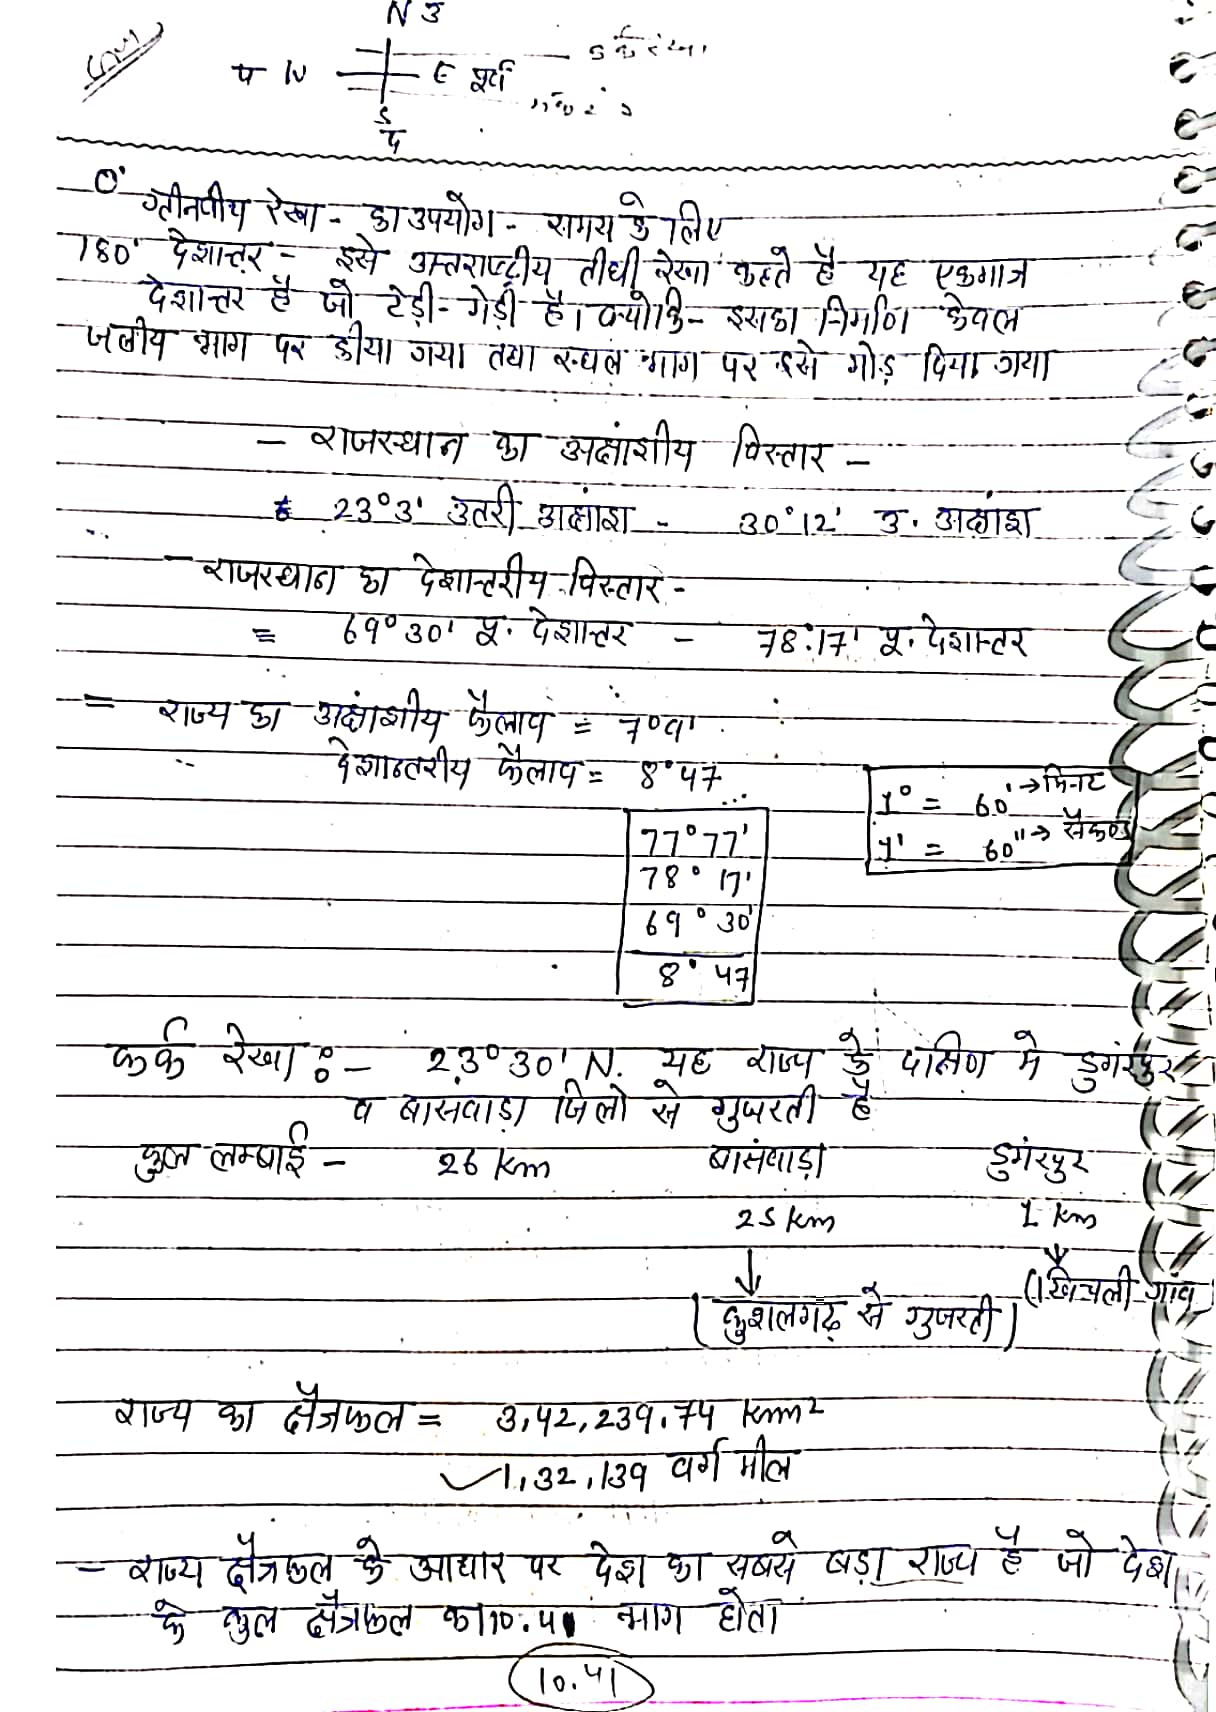 N उ
प W E पूर्व
S
द
0° ग्रीनवीय रेखा - का उपयोग - समय के लिए
180° देशान्तर - इसे अन्तराष्ट्रीय तीथी रेखा कहते है यह एकमात्र
देशान्तर है जो टेड़ी-मेड़ी है। क्योकि- इसका निर्माण केवल
जलीय भाग पर कीया गया तथा स्थल भाग पर इसे मोड़ दिया गया
- राजस्थान का अक्षांशीय विस्तार -
23°3' उतरी अक्षांश - 30°12' उ. अक्षांश
- राजस्थान का देशान्तरीय विस्तार -
= 69°30' पू. देशान्तर - 78°.17' पू. देशान्तर
= राज्य का अक्षांशीय फैलाव = 7°9'
देशान्तरीय फैलाव = 8°47
1° = 60' → मिनट
1' = 60" → सैकण्ड
77°77'
78°17'
69°30'
8°47
कर्क रेखा :- 23°30'N. यह राज्य के दक्षिण मे डुगंरपुर
व बासवाड़ा जिलो से गुजरती है
कुल लम्बाई - 26 km बासंवाड़ा डुगंरपुर
25 km 1 km
(कुशलगढ़ से गुजरती) (खिचली गांव
राज्य का क्षैत्रफल = 3,42,239.74 km²
1,32,139 वर्ग मील
- राज्य क्षैत्रफल के आधार पर देश का सबसे बड़ा राज्य है जो देश
के कुल क्षैत्रफल का 10.41 भाग होता
10.41